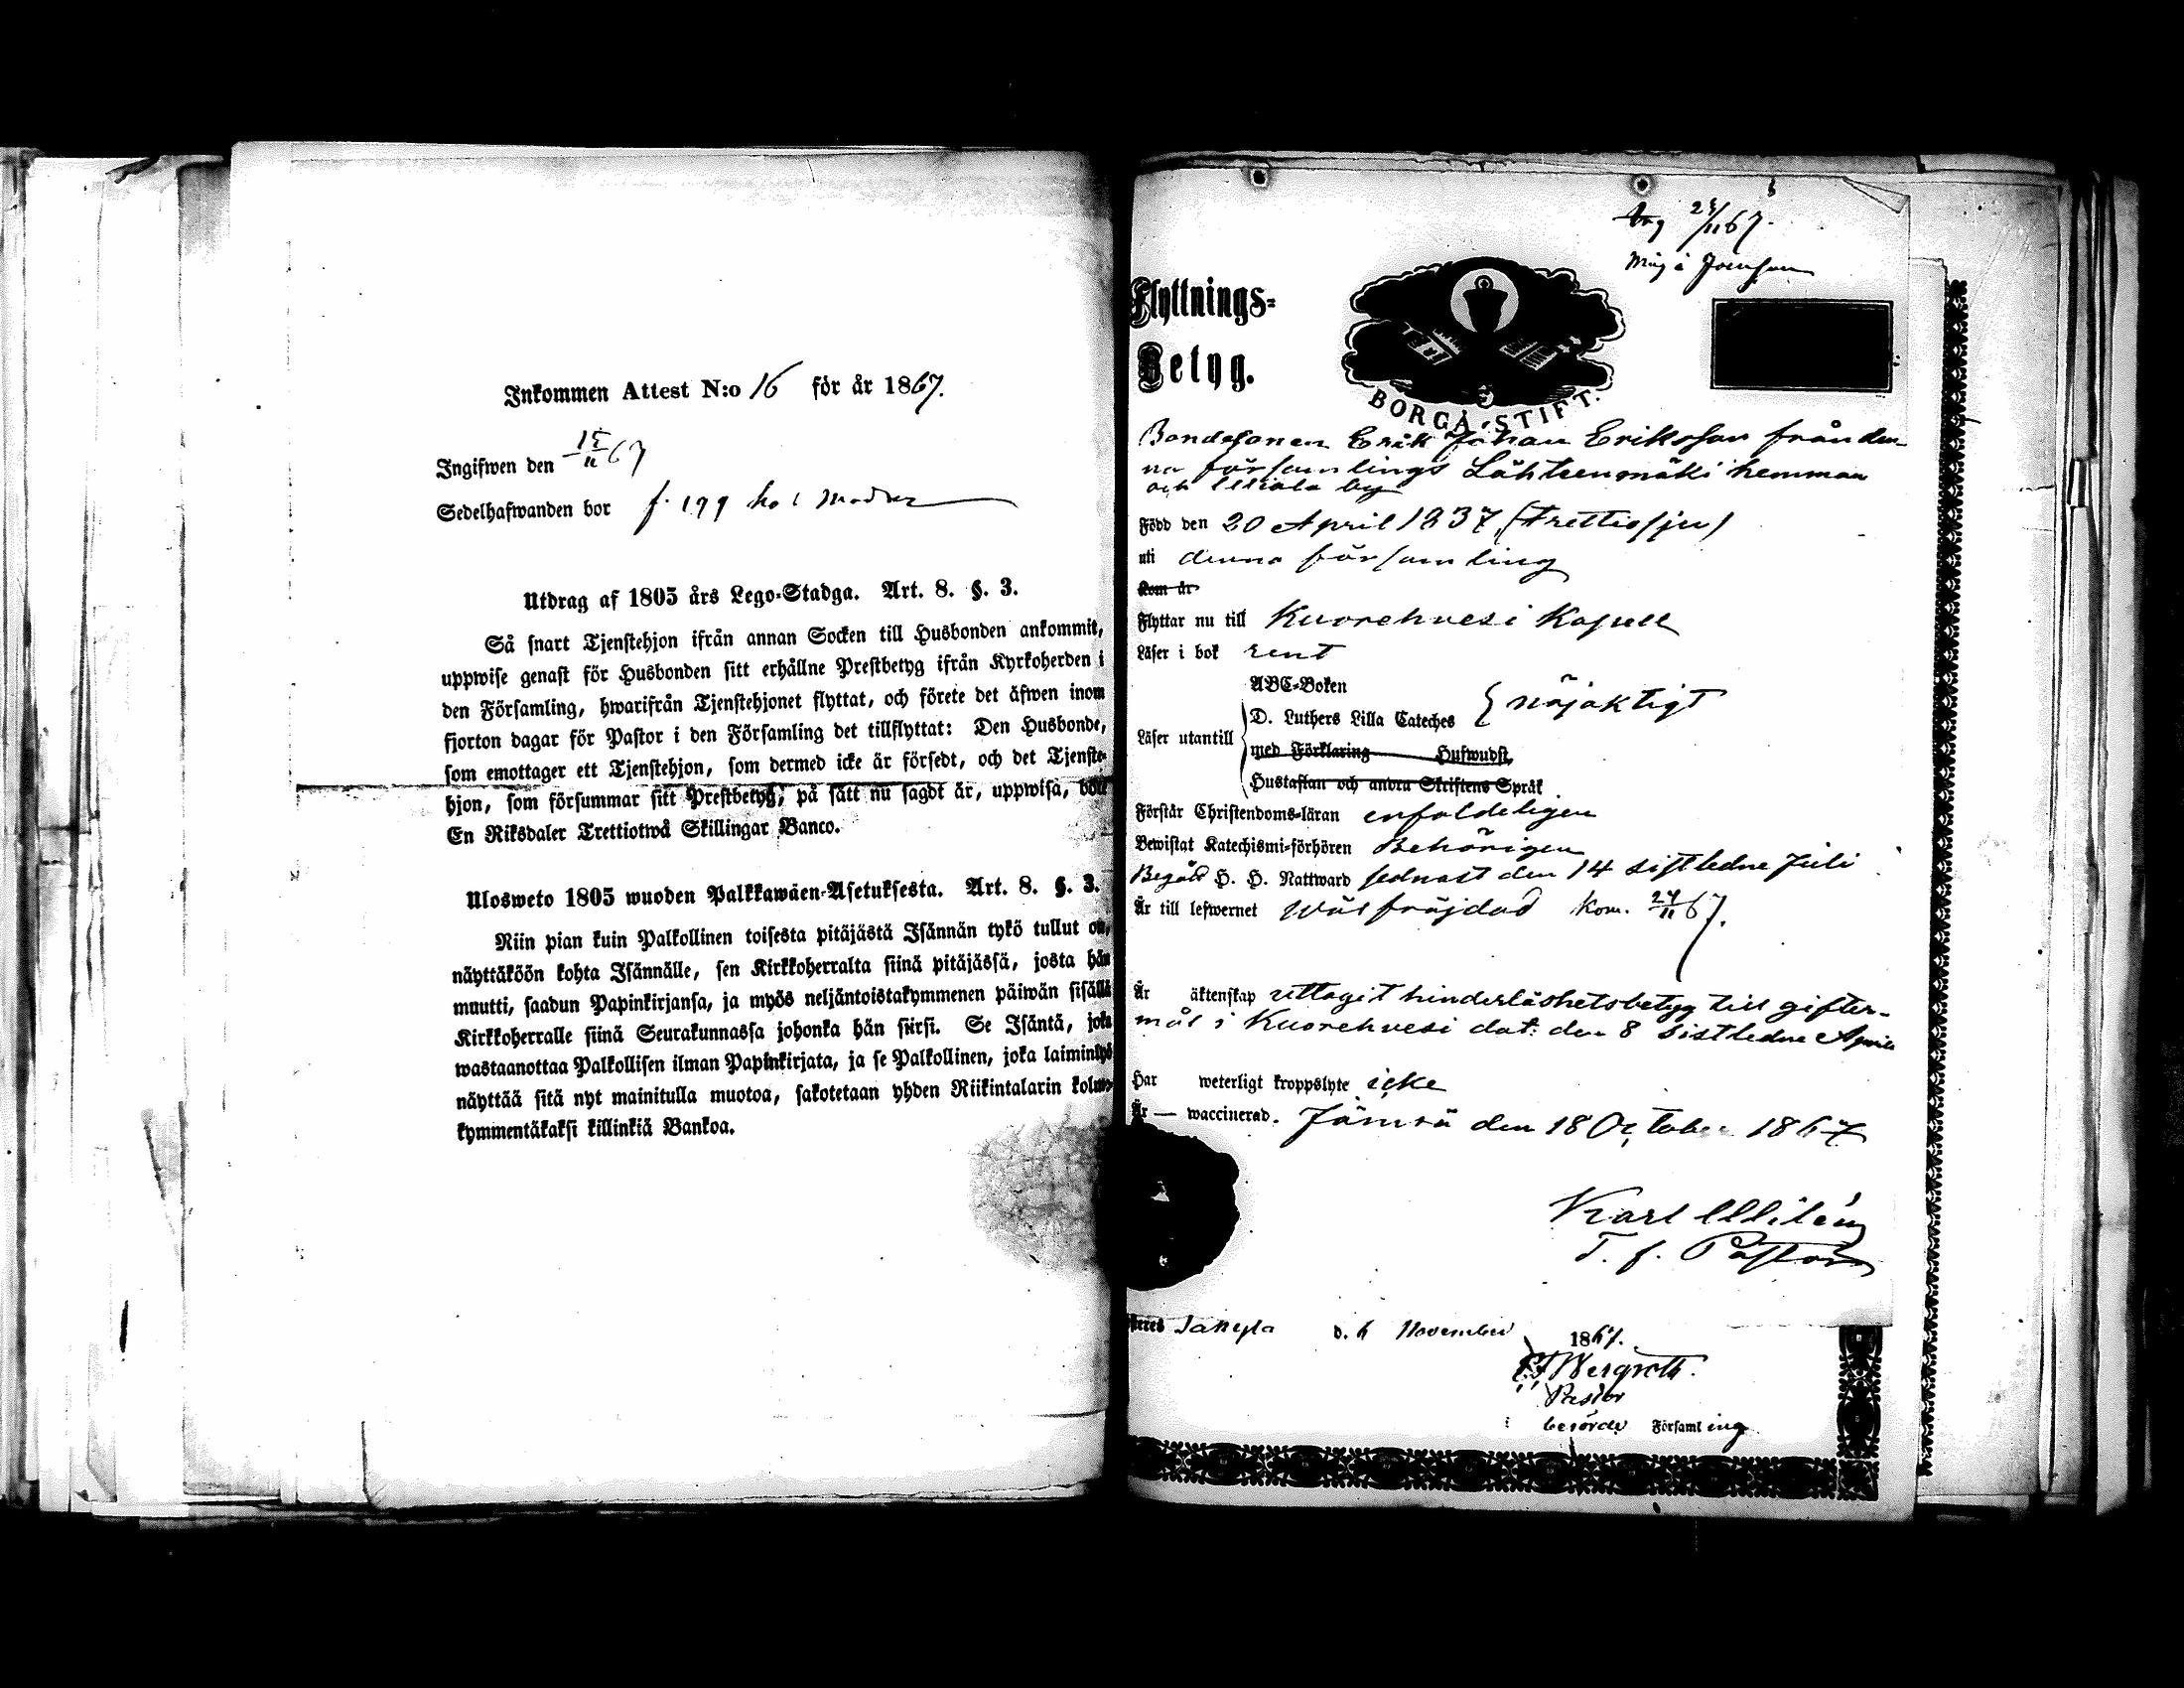 Inkommen Attest N:o 16 för år 1867.
Ingifwen den 15/11 67
Sedelhafwanden bor f. 199 hos Moder
Utdrag af 1805 års Lego-Stadga. Art. 8. §. 3.
Så snart Tjenstehjon ifrån annan Socken till Husbonden ankommit,
uppwise genast för Husbonden sitt erhållne Prestbetyg ifrån Kyrkoherden i
den Församling, hwarifrån Tjenstehjonet flyttat, och förete det äfwen inom
fjorton dagar för Pastor i den Församling det tillflyttat: Den Husbonde,
som emottager ett Tjenstehjon, som dermed icke är försedt, och det Tjenste-
hjon, som försummar sitt Prestbetyg, på sätt nu sagdt är, uppwisa, böte
En Riksdaler Trettiotwå Skillingar Banco.
Ulosweto 1805 wuoden Palkkawäen-Asetuksesta. Art. 8. §. 3.
Niin pian kuin Palkollinen toisesta pitäjästä Isännän tykö tullut on,
näyttäköön kohta Isännälle, sen Kirkkoherralta siinä pitäjässä, josta hän
muutti, saadun Papinkirjansa, ja myös neljäntoistakymmenen päiwän sisällä
Kirkkoherralle siinä Seurakunnassa johonka hän siirsi. Se Isäntä, joka
wastaanottaa Palkollisen ilman Papinkirjata, ja se Palkollinen, joka laiminlyö
näyttää sitä nyt mainitulla muotoa, sakotetaan yhden Riikintalarin kolme-
kymmentäkaksi killinkiä Bankoa.
11 67.
Flyttnings-
Betyg.
BORGÅ STIFT.
Bondesonen Erik Johan Eriksson från den-
na församlings Lähteenmäki hemman
och by
Född den 20 April 1837, (trettiosju)
uti denna församling
Kom år
Flyttar nu till Kuorehvesi Kapell
Läser i bok rent
Läser utantill
ABC-Boken
D. Luthers Lilla Cateches } nöjaktigt
med Förklaring Hufwudst.
Hustaflan och andra Skriftens Språk
Förstår Christendoms-läran enfaldeligen
Bewistat Katechismi-förhören Behörigen
Begått H. H. Nattward sednast den 14 sistledne Juli
Är till lefwernet wäl fräjdad Kom. 24/11 67.
Är äktenskap uttagit hinderlöshetsbetyg till gifter-
mål i Kuorehvesi dat: den 8 sistledne April
Har weterligt kroppslyte icke
Är — waccinerad. Jämsä den 18 October 1867
Karl
T. f. Pastor
d. 6 November 1867.
Bergroth.
Pastor
i berörde Församling